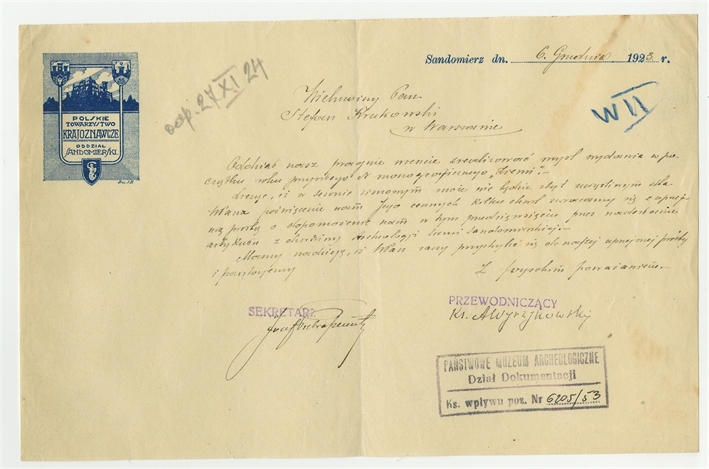 POLSKIE
TOWARZYSTWO
KRAJOZNAWCZE
ODDZIAŁ
SANDOMIERSKI
Sandomierz dn. 6. Grudnia 1923. r.
odp. 27 XI 24
W II
Wielmożny Pan
Stefan Krukowski
w Warszawie
Oddział nasz pragnie zrealizować myśl wydania w po-
czątku roku przyszłego № monograficznego „Ziemi".
Licząc, iż w sezonie zimowym może nie będzie zbyt uciążliwym dla
Pana poświęcenie nam Jego cennych kilku chwil zwracamy się z uprzej-
mą prośbą o dopomożenie nam w tym przedsięwzięciu przez nadesłanie
artykułu z dziedziny Archeologji ziemi Sandomierskiej.
Mamy nadzieję, iż Pan raczy przychylić się do naszej uprzejmej prośby
i
Z wysokim poważaniem
SEKRETARZ
PRZEWODNICZĄCY
Józef
Ks. A Wyrzykowski
PAŃSTWOWE MUZEUM ARCHEOLOGICZNE
Dział Dokumentacji
Ks. wpływu poz. Nr 6205/53